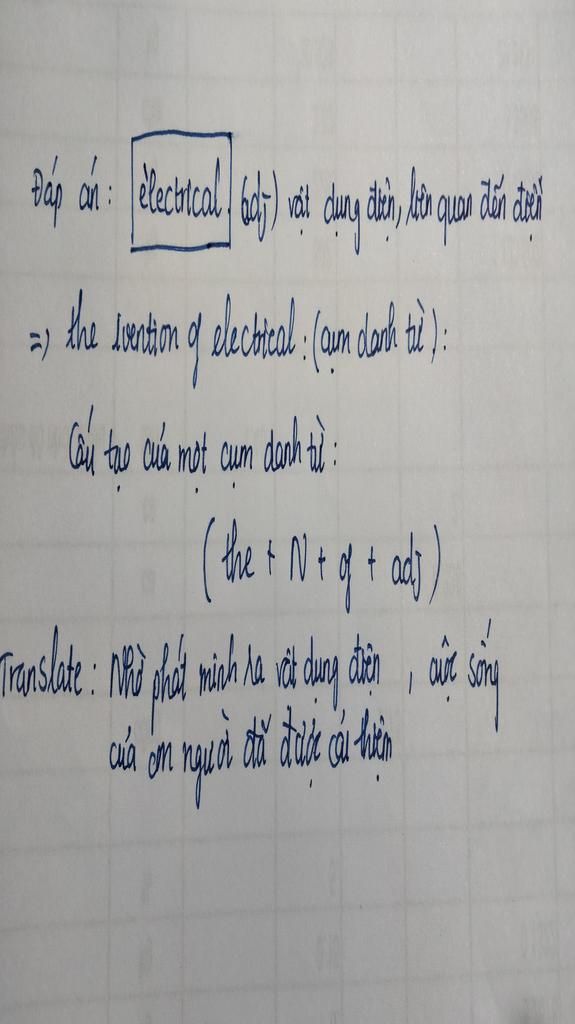 Đáp án: electrical (adj) vật dụng điện, liên quan đến điện
=> the ivention of electrical: (cụm danh từ):
Cấu tạo của một cụm danh từ:
(the + N + of + adj)
Translate: Nhờ phát minh ra vật dụng điện, cuộc sống
của con người đã được cải thiện